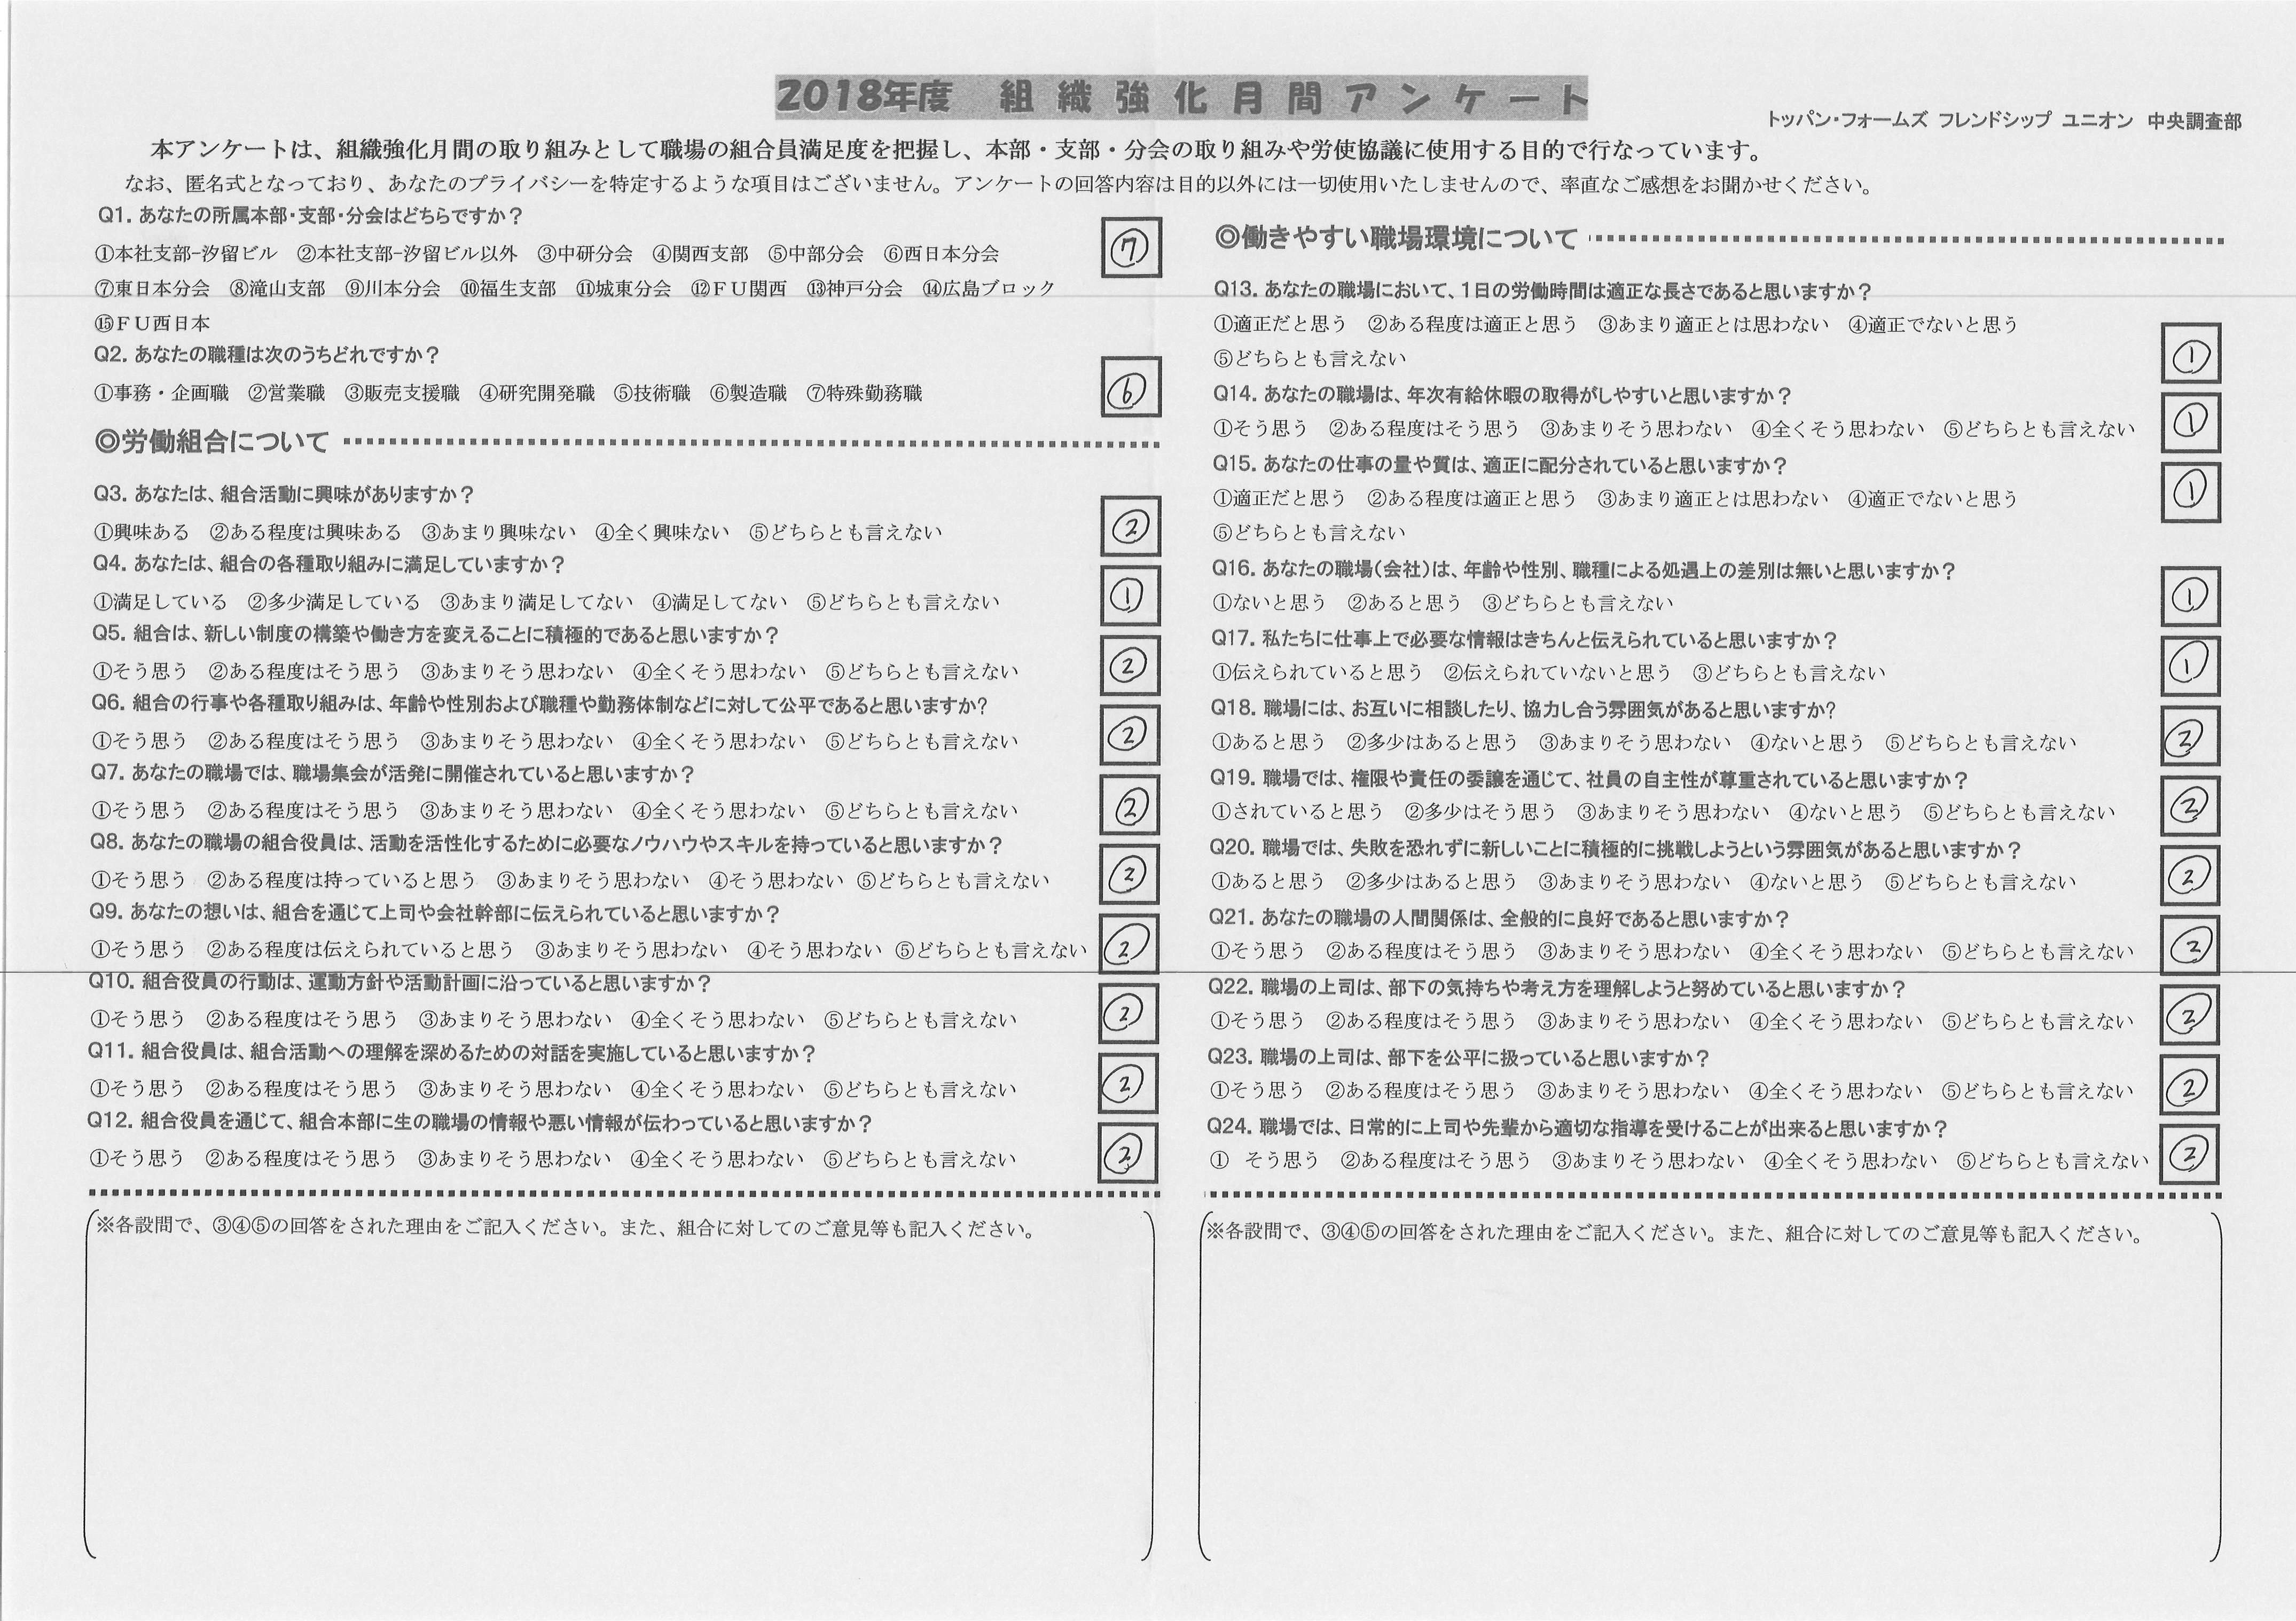 2018年度　組織強化月間アンケート
トッパン・フォームズ フレンドシップ ユニオン 中央調査部
本アンケートは、組織強化月間の取り組みとして職場の組合員満足度を把握し、本部・支部・分会の取り組みや労使協議に使用する目的で行なっています。
なお、匿名式となっており、あなたのプライバシーを特定するような項目はございません。アンケートの回答内容は目的以外には一切使用いたしませんので、率直なご感想をお聞かせください。
Q1. あなたの所属本部・支部・分会はどちらですか？
①本社支部−汐留ビル　②本社支部−汐留ビル以外　③中研分会　④関西支部　⑤中部分会　⑥西日本分会
⑦
⑦東日本分会　⑧滝山支部　⑨川本分会　⑩福生支部　⑪城東分会　⑫ＦＵ関西　⑬神戸分会　⑭広島ブロック
⑮ＦＵ西日本
Q2. あなたの職種は次のうちどれですか？
①事務・企画職　②営業職　③販売支援職　④研究開発職　⑤技術職　⑥製造職　⑦特殊勤務職
⑥
◎労働組合について
Q3. あなたは、組合活動に興味がありますか？
①興味ある　②ある程度は興味ある　③あまり興味ない　④全く興味ない　⑤どちらとも言えない
②
Q4. あなたは、組合の各種取り組みに満足していますか？
①満足している　②多少満足している　③あまり満足してない　④満足してない　⑤どちらとも言えない
①
Q5. 組合は、新しい制度の構築や働き方を変えることに積極的であると思いますか？
①そう思う　②ある程度はそう思う　③あまりそう思わない　④全くそう思わない　⑤どちらとも言えない
②
Q6. 組合の行事や各種取り組みは、年齢や性別および職種や勤務体制などに対して公平であると思いますか?
①そう思う　②ある程度はそう思う　③あまりそう思わない　④全くそう思わない　⑤どちらとも言えない
②
Q7. あなたの職場では、職場集会が活発に開催されていると思いますか？
①そう思う　②ある程度はそう思う　③あまりそう思わない　④全くそう思わない　⑤どちらとも言えない
②
Q8. あなたの職場の組合役員は、活動を活性化するために必要なノウハウやスキルを持っていると思いますか？
①そう思う　②ある程度は持っていると思う　③あまりそう思わない　④そう思わない　⑤どちらとも言えない
②
Q9. あなたの想いは、組合を通じて上司や会社幹部に伝えられていると思いますか？
①そう思う　②ある程度は伝えられていると思う　③あまりそう思わない　④そう思わない　⑤どちらとも言えない
②
Q10. 組合役員の行動は、運動方針や活動計画に沿っていると思いますか？
①そう思う　②ある程度はそう思う　③あまりそう思わない　④全くそう思わない　⑤どちらとも言えない
②
Q11. 組合役員は、組合活動への理解を深めるための対話を実施していると思いますか？
①そう思う　②ある程度はそう思う　③あまりそう思わない　④全くそう思わない　⑤どちらとも言えない
②
Q12. 組合役員を通じて、組合本部に生の職場の情報や悪い情報が伝わっていると思いますか？
①そう思う　②ある程度はそう思う　③あまりそう思わない　④全くそう思わない　⑤どちらとも言えない
②
※各設問で、③④⑤の回答をされた理由をご記入ください。また、組合に対してのご意見等も記入ください。
◎働きやすい職場環境について
Q13. あなたの職場において、1日の労働時間は適正な長さであると思いますか？
①適正だと思う　②ある程度は適正と思う　③あまり適正とは思わない　④適正でないと思う
⑤どちらとも言えない
①
Q14. あなたの職場は、年次有給休暇の取得がしやすいと思いますか？
①そう思う　②ある程度はそう思う　③あまりそう思わない　④全くそう思わない　⑤どちらとも言えない
①
Q15. あなたの仕事の量や質は、適正に配分されていると思いますか？
①適正だと思う　②ある程度は適正と思う　③あまり適正とは思わない　④適正でないと思う
①
⑤どちらとも言えない
Q16. あなたの職場（会社）は、年齢や性別、職種による処遇上の差別は無いと思いますか？
①ないと思う　②あると思う　③どちらとも言えない
①
Q17. 私たちに仕事上で必要な情報はきちんと伝えられていると思いますか？
①伝えられていると思う　②伝えられていないと思う　③どちらとも言えない
①
Q18. 職場には、お互いに相談したり、協力し合う雰囲気があると思いますか?
①あると思う　②多少はあると思う　③あまりそう思わない　④ないと思う　⑤どちらとも言えない
②
Q19. 職場では、権限や責任の委譲を通じて、社員の自主性が尊重されていると思いますか？
①されていると思う　②多少はそう思う　③あまりそう思わない　④ないと思う　⑤どちらとも言えない
②
Q20. 職場では、失敗を恐れずに新しいことに積極的に挑戦しようという雰囲気があると思いますか？
①あると思う　②多少はあると思う　③あまりそう思わない　④ないと思う　⑤どちらとも言えない
②
Q21. あなたの職場の人間関係は、全般的に良好であると思いますか？
①そう思う　②ある程度はそう思う　③あまりそう思わない　④全くそう思わない　⑤どちらとも言えない
②
Q22. 職場の上司は、部下の気持ちや考え方を理解しようと努めていると思いますか？
①そう思う　②ある程度はそう思う　③あまりそう思わない　④全くそう思わない　⑤どちらとも言えない
②
Q23. 職場の上司は、部下を公平に扱っていると思いますか？
①そう思う　②ある程度はそう思う　③あまりそう思わない　④全くそう思わない　⑤どちらとも言えない
②
Q24. 職場では、日常的に上司や先輩から適切な指導を受けることが出来ると思いますか？
①　そう思う　②ある程度はそう思う　③あまりそう思わない　④全くそう思わない　⑤どちらとも言えない
②
※各設問で、③④⑤の回答をされた理由をご記入ください。また、組合に対してのご意見等も記入ください。